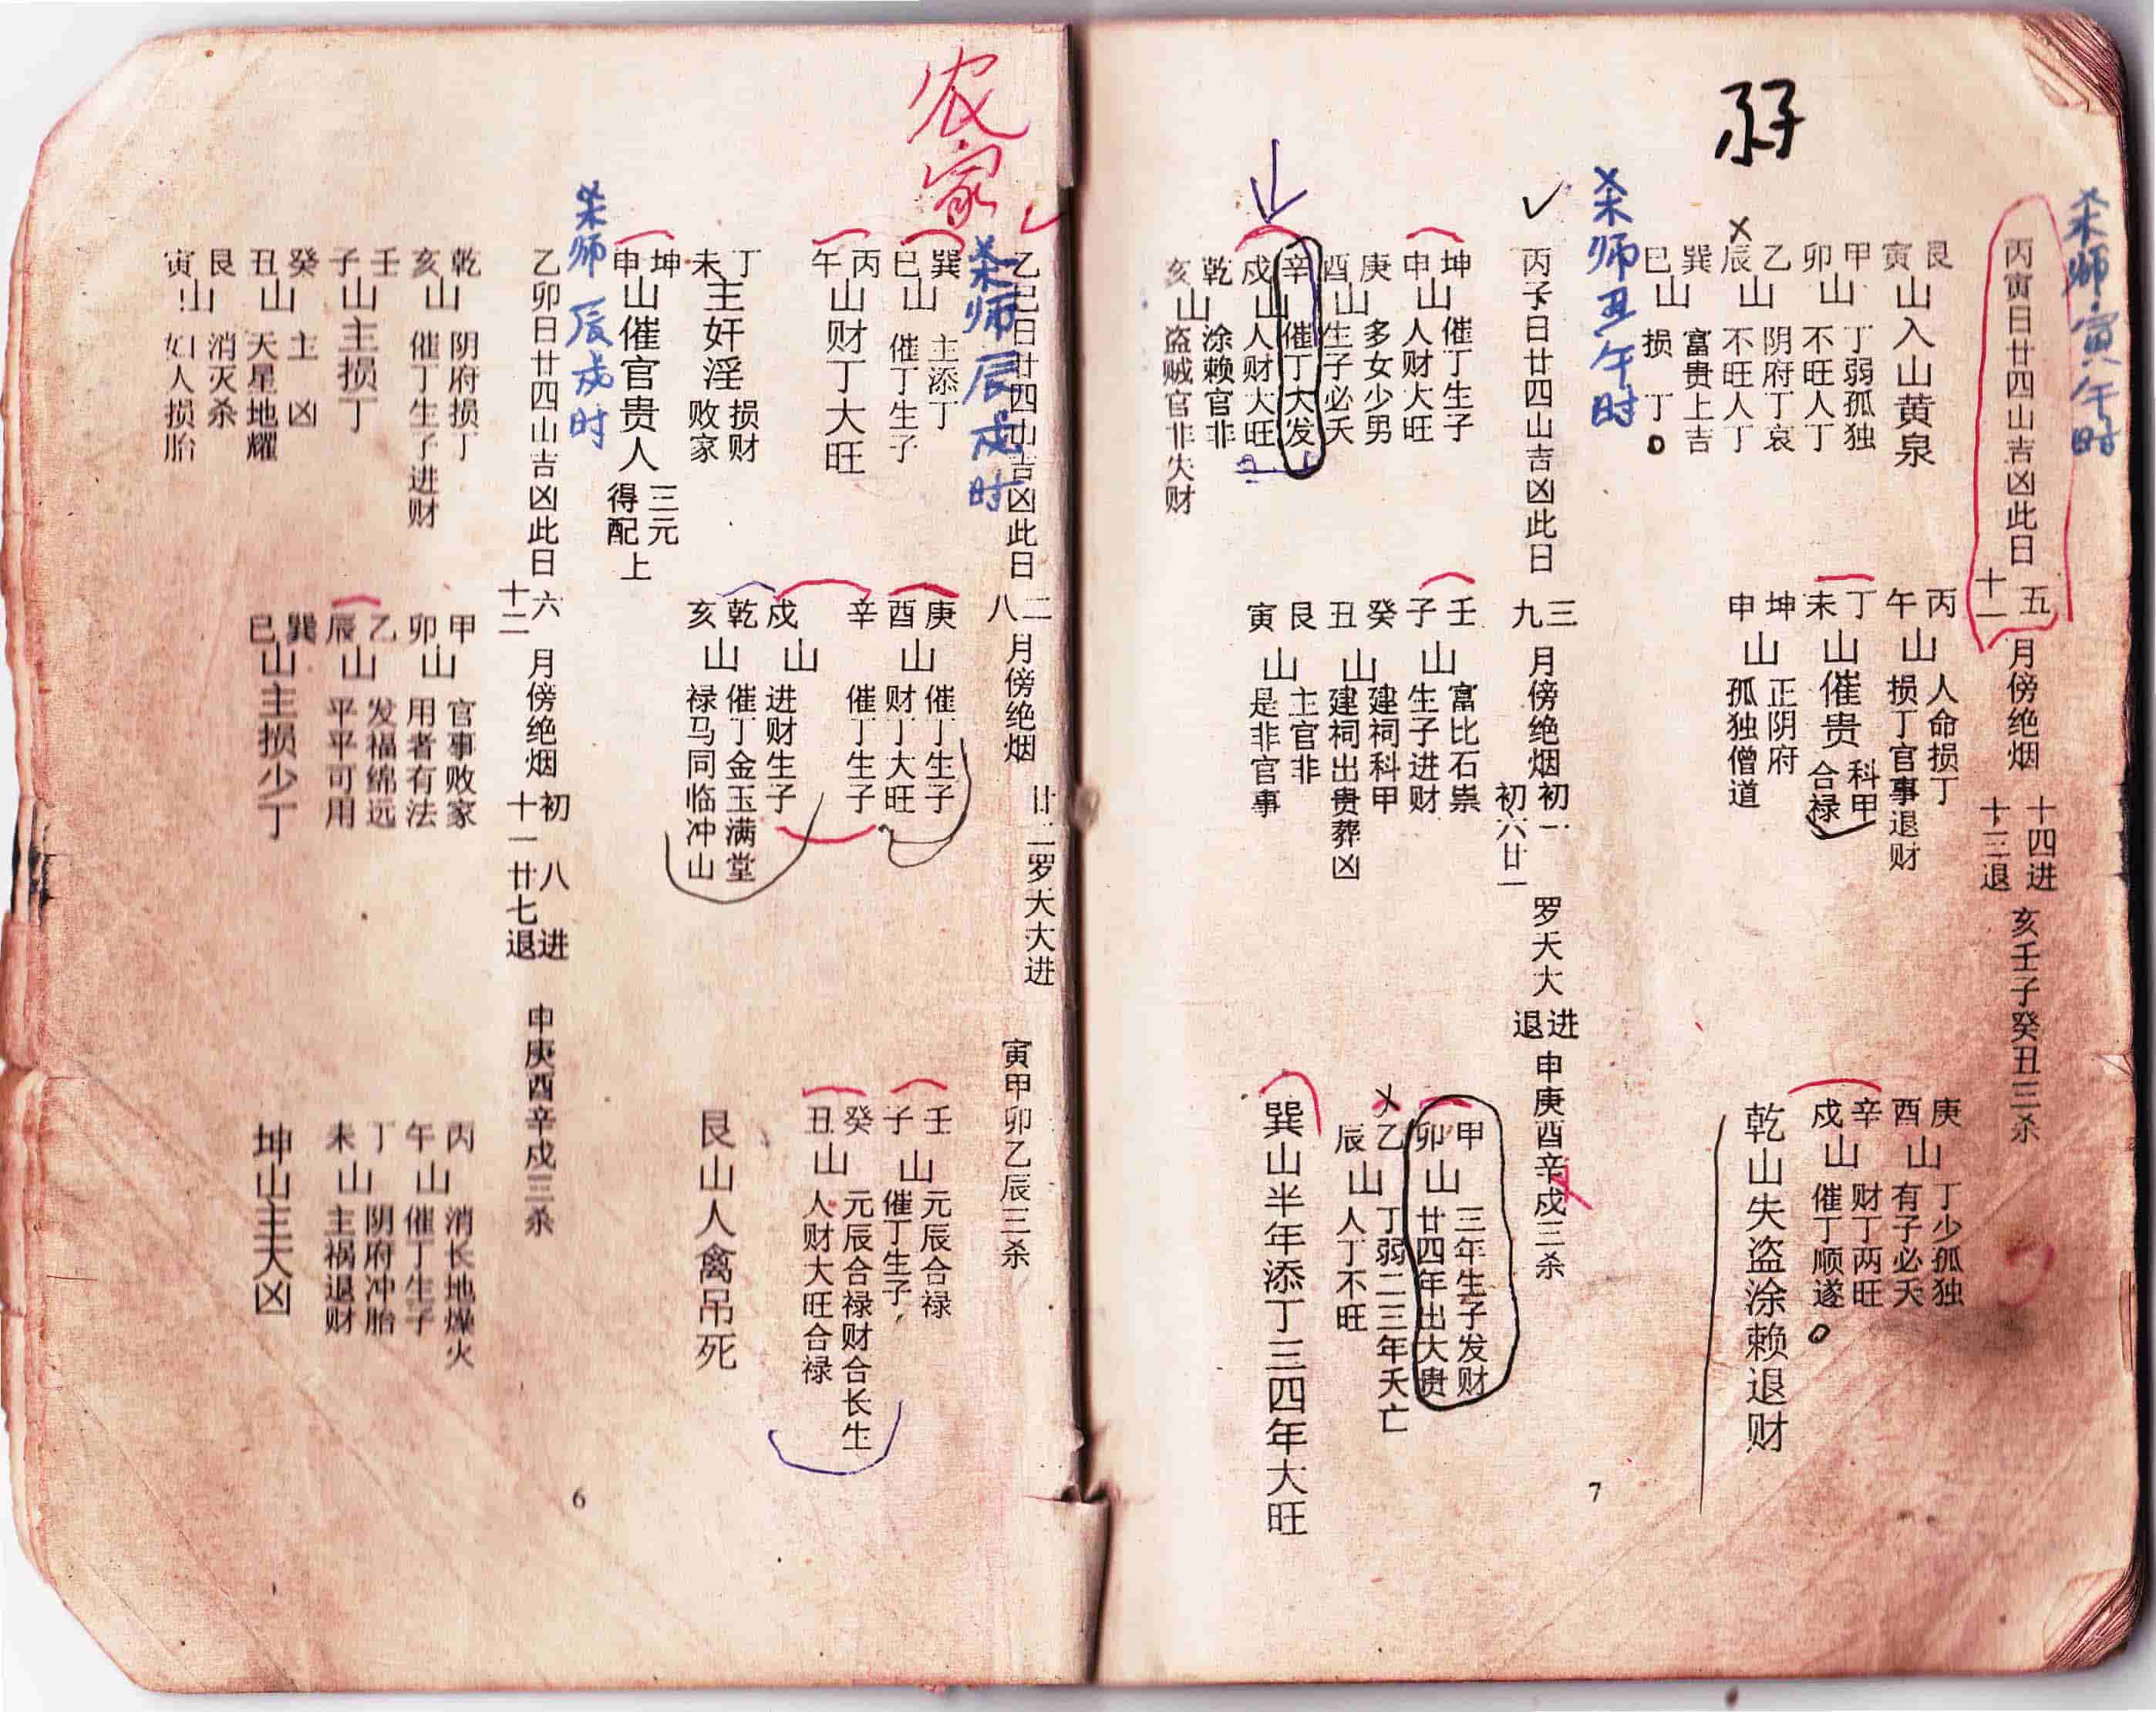 农家
杀师辰戌时
乙巳日廿四山吉凶此日二八月傍绝烟 廿二罗大大进 寅甲卯乙辰三杀
巽巳山 主添丁 催丁生子
丙午山财丁大旺
丁未主奸淫 损财 败家
坤申山催官贵人 三元 得配上
庚酉山 催丁生子 财丁大旺
辛戌山 催丁生子 进财生子
乾亥山 催丁金玉满堂 禄马同临冲山
壬子山 元辰合禄 催丁生子
癸丑山 元辰合禄财合长生 人财大旺合禄
艮山人禽吊死
杀师辰戌时
乙卯日廿四山吉凶此日六十二月傍绝烟 初八进 十一廿七退 申庚酉辛戌三杀
乾亥山 阴府损丁 催丁生子进财
壬子山主损丁
癸丑山 主凶 天星地耀
艮寅山 消灭杀 妇人损胎
甲卯山 官事败家 用者有法
乙辰山 发福绵远 平平可用
巽巳山主损少丁
丙午山 消长地燥火 催丁生子
丁未山 阴府冲胎 主祸退财
坤山主大凶
6
杀师寅午时
丙寅日廿四山吉凶此日五十一月傍绝烟 十四进 十三退 亥壬子癸丑三杀
艮寅山入山黄泉
甲卯山 丁弱孤独 不旺人丁
乙辰山 阴府丁哀 不旺人丁
巽巳山 富贵上吉 损丁
丙午山 人命损丁 损丁官事退财
丁未山催贵 科甲 合禄
坤申山 正阴府 孤独僧道
庚酉山 丁少孤独 有子必夭
辛戌山 财丁两旺 催丁顺遂
乾山失盗涂赖退财
杀师丑午时
丙子日廿四山吉凶此日三九月傍绝烟 初一 初六廿一 罗天大进退 申庚酉辛戌三杀
坤申山 催丁生子 人财大旺
庚酉山 多女少男 生子必夭
辛戌山 催丁大发 人财大旺
乾亥山 涂赖官非 盗贼官非失财
壬子山 富比石祟 生子进财
癸丑山 建祠科甲 建祠出贵葬凶
艮寅山 主官非 是非官事
甲卯山 三年生子发财 廿四年出大贵
乙辰山 丁弱二三年夭亡 人丁不旺
巽山半年添丁三四年大旺
7